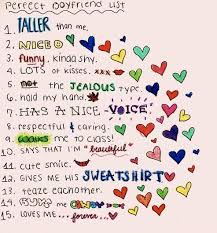 perfect boyfriend list
1. TALLER than me.
2. NICE
3. funny. kinda shy.
4. LOTS of kisses. xxx
5. not the JEALOUS type.
6. hold my hand.
7. HAS A NICE -VOICE-
8. respectful & caring.
9. walks me to class!
10. SAYS THAT I'M "beautiful"
11. cute smile.
12. GIVES ME HIS SWEATSHIRT
13. teaze eachother.
14. BUYS me CANDY
15. LOVES ME... forever...